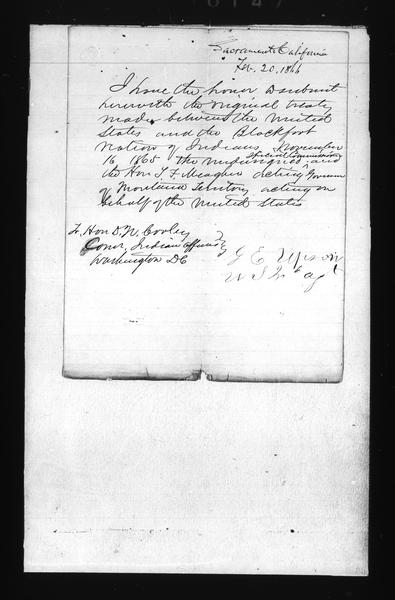 Sacramento California
Feb. 20, 1866
I have the honor to submit
herewith the original treaty
made between the United
States and the Blackfoot
Nation of Indians, November
16 1865 the undersigned special Commissioner, and
the Hon T F Meagher acting Governor
of Montana Territory acting on
behalf of the United States
To Hon D. N. Cooley
Comr. Indian Affairs
Washington DC
G E Upson
U S In agt